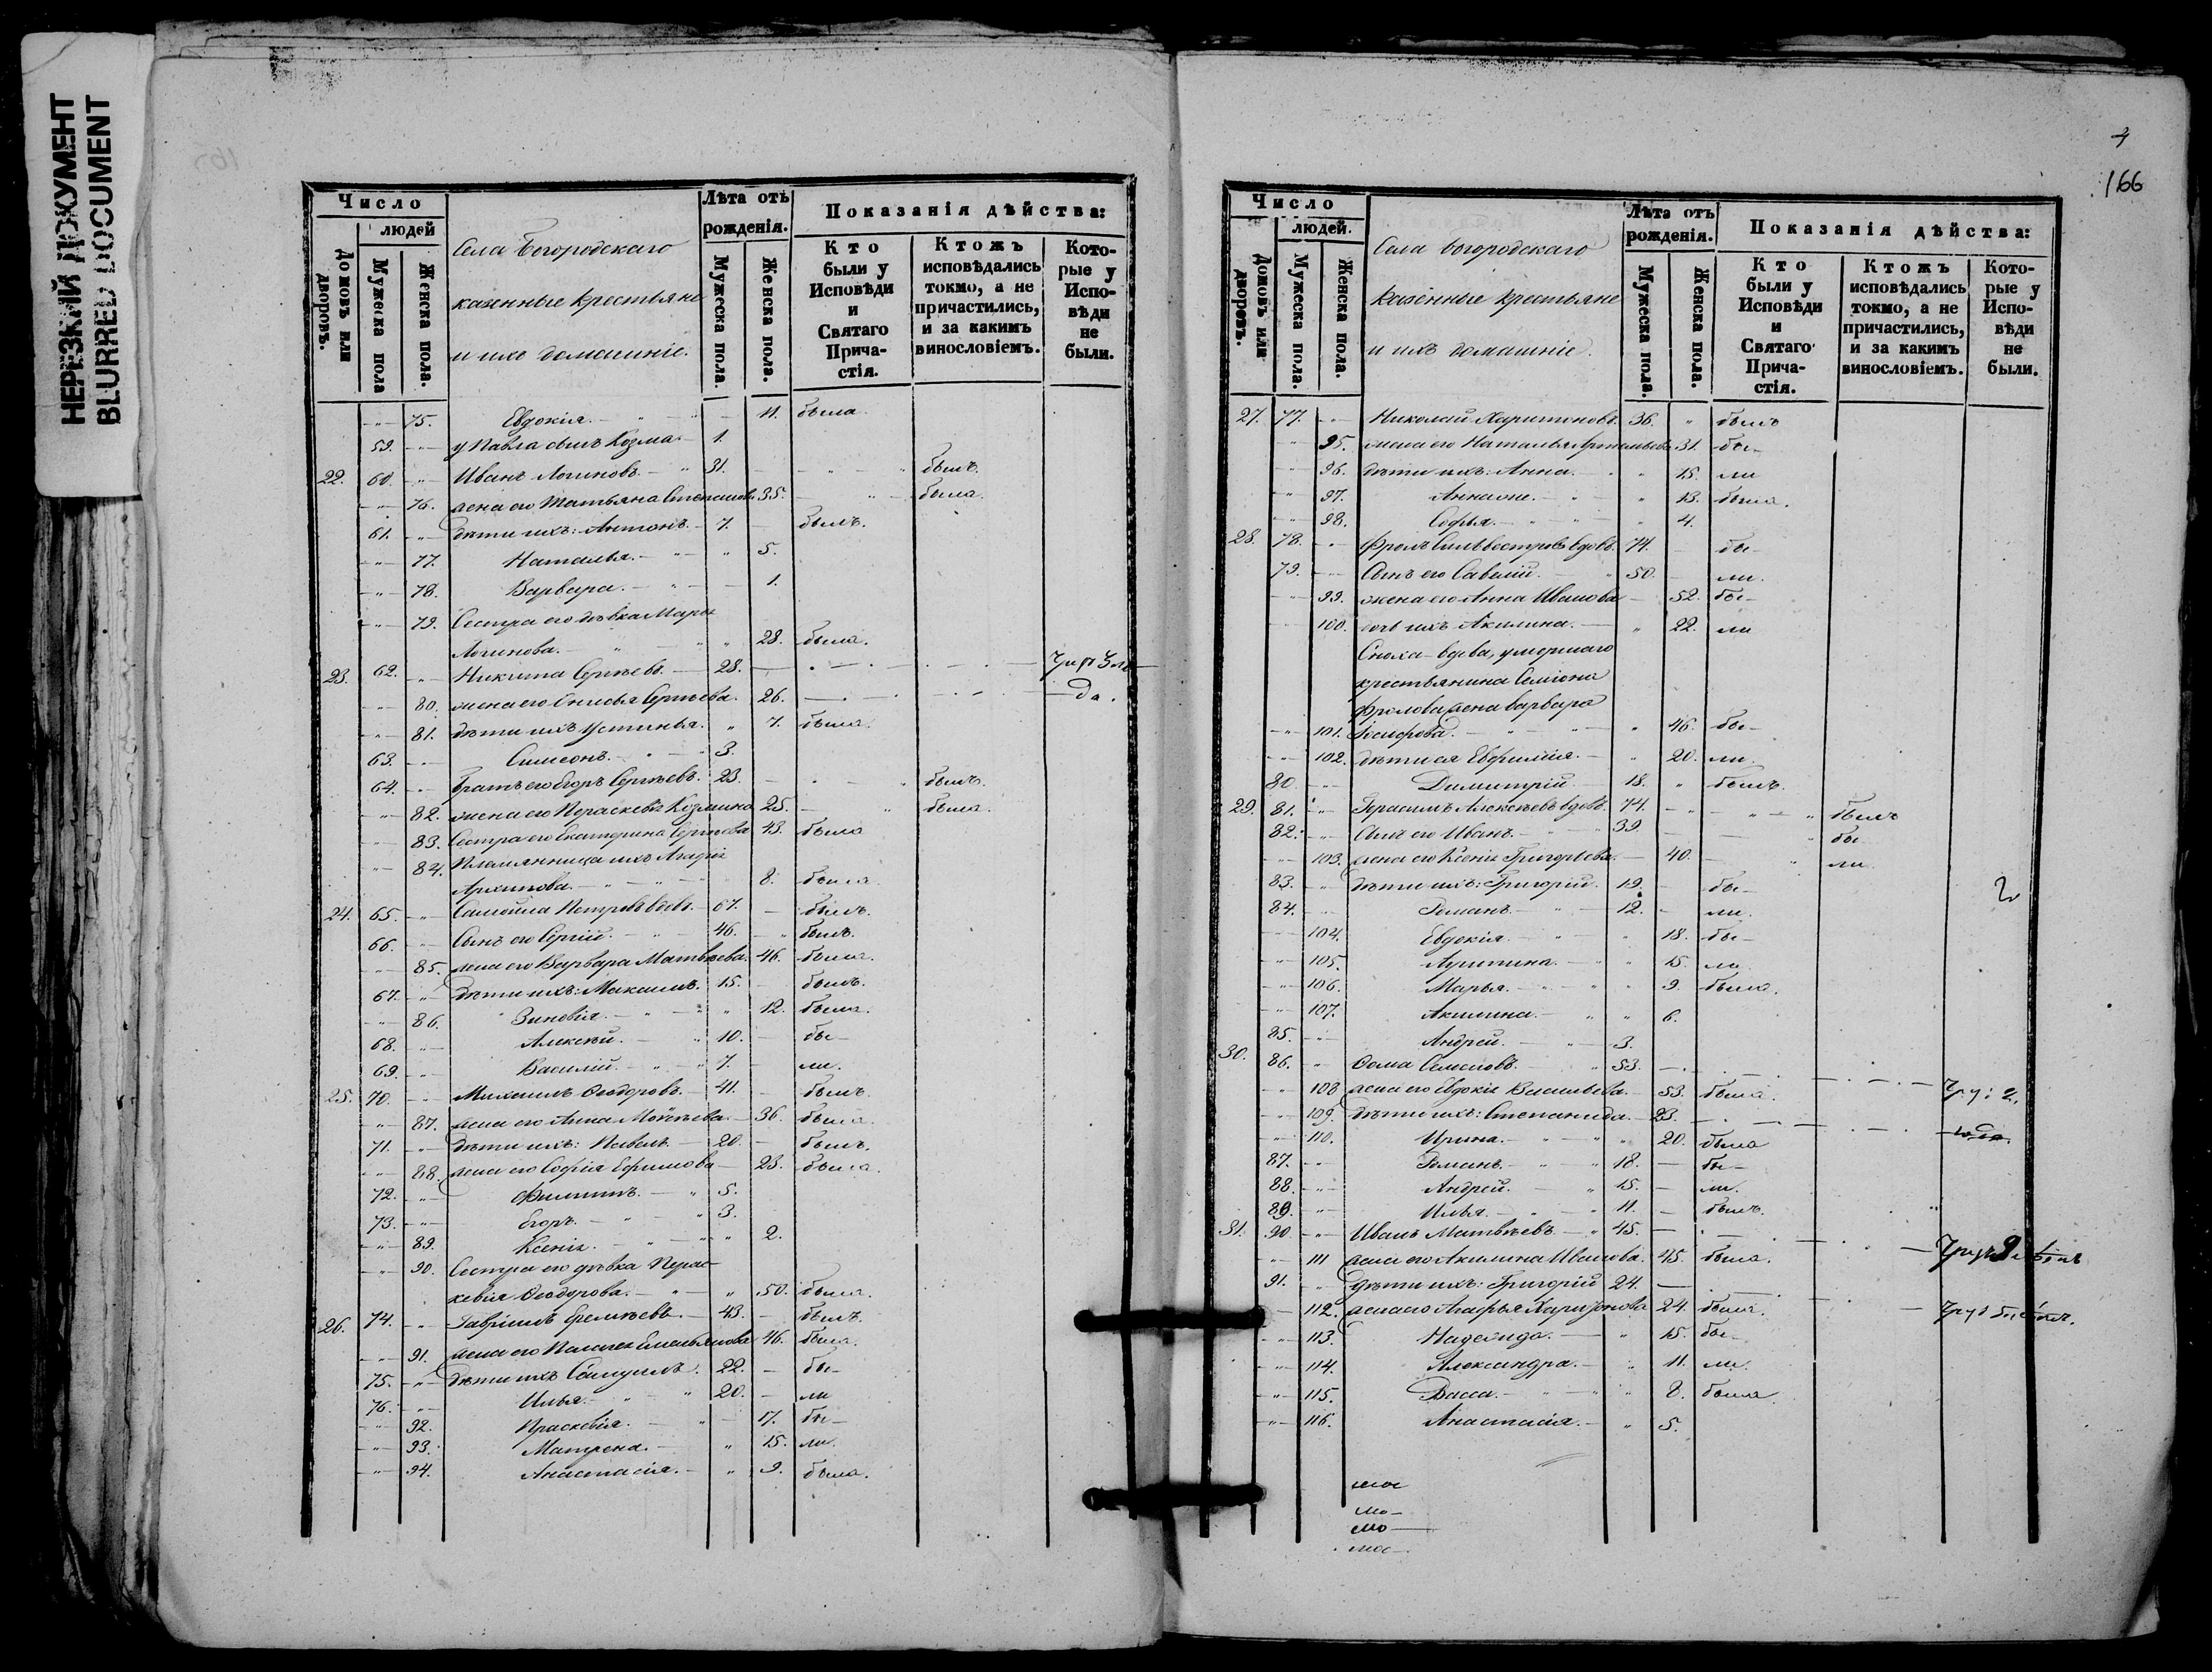 НЕРЕЗКИЙ ДОКУМЕНТ
BLURRED DOCUMENT
Число
людей
Домовъ или дворовъ.
Мужеска пола
Женска пола.
Села Богородскаго
казенные крестьяне
и ихъ домашніе.
Лѣта отъ рожденія.
Мужеска пола.
Женска пола.
Показанія дѣйства:
Кто были у Исповѣди и Святаго Прича-стія.
Ктожъ исповѣдались токмо, а не причастились, и за какимъ винословіемъ.
Кото-рые у Испо-вѣди не были.
75. Евдокія. 11. была
59. у Павла сынъ Козма 1.
22. 60. Иванъ Логиновъ. 31. былъ.
76. жена его Татьяна Степанова 35. была.
61. дѣти ихъ: Антонъ. 7. былъ.
77. Наталья. 5.
78. Варвара. 1.
79. Сестра его дѣвка Марья
Логинова. 28. была.
23. 62. Никита Сергѣевъ. 28.
80. жена его Сергѣева. 26.
81. дѣти ихъ Устинья. 7. была.
63. Симеонъ. 3.
64. Братъ его Егоръ Сергѣевъ. 23. былъ.
82. жена его Параскева Козмина 25. была.
83. Сестра его Екатерина Сергѣева 43. была
84. Племянница ихъ
Архипова. 8. была.
24. 65. Самойла Петровъ вдовъ. 67. былъ.
66. Сынъ его Сергій. 46. былъ.
85. жена его Варвара Матвѣева. 46. была.
67. дѣти ихъ: Максимъ. 15. былъ.
86. Зиновія. 12. была.
68. Алексѣй. 10. бы-
69. Василій. 7. ли.
25. 70. Михаилъ Ѳеодоровъ. 41. былъ.
87. жена его Анна Моѵсеева. 36. была.
71. дѣти ихъ: Павелъ. 20. былъ.
88. жена его Софія Ефимова 23. была.
72. Филиппъ. 5.
73. Егоръ. 3.
89. Ксенія. 2.
90. Сестра его дѣвка Парас-
кевія Ѳеодорова. 50. была.
26. 74. Гавріилъ Еремѣевъ. 43. былъ.
91. жена его Пелагея Емельянова 46. была.
75. дѣти ихъ Самуилъ. 22. бы-
76. Илья. 20. ли
92. Праскевія. 17. бы-
93. Матрена. 15. ли.
94. Анастасія. 9. была.
4
166
Число
людей.
Домовъ или дворовъ.
Мужеска пола.
Женска пола.
Села Богородскаго
казенные крестьяне
и ихъ домашніе.
Лѣта отъ рожденія.
Мужеска пола.
Женска пола.
Показанія дѣйства:
Кто были у Исповѣди и Святаго Прича-стія.
Ктожъ исповѣдались токмо, а не причастились, и за какимъ винословіемъ.
Кото-рые у Испо-вѣди не были.
27. 77. Николай Харитоновъ. 36. былъ
95. жена его Наталья 31. бы-
96. дѣти ихъ: Анна. 15. ли
97. Анна оне. 13. была.
98. Софья. 4.
28. 78. Фролъ Силвестровъ вдовъ. 74. бы-
79. Сынъ его Савелій. 50. ли.
99. жена его Анна Иванова 52. бы-
100. дочь ихъ Акилина. 22. ли
Сноха вдова, умершаго
крестьянина Семіона
Фролова жена Варвара
101. Іосифова. 46. бы-
102. дѣти ея Евфимія. 20. ли.
80. Димитрій 18. былъ.
29. 81. Герасимъ Алексѣевъ вдовъ. 74. былъ
82. Сынъ его Иванъ. 39. бы
103. жена его Ксенія Григорьева. 40. ли.
83. дѣти ихъ: Григорій. 19. бы-
2
84. Романъ. 12. ли.
104. Евдокія. 18. бы-
105. 15. ли
106. Марья. 9. была.
107. Акилина. 6.
85. Андрей. 3.
30. 86. Ѳома Семеновъ. 53.
108. жена его Евдокія Васильева. 53. была.
109. дѣти ихъ: Степанида. 23.
110. Ирина. 20. была
87. Романъ. 18. бы-
88. Андрей. 15. ли.
89. Илья. 11. былъ.
31. 90. Иванъ Матвѣевъ. 45.
111 жена его Акилина Иванова. 45. была.
91. дѣти ихъ: Григорій 24.
112. жена его Агафья Харитонова 24. была.
113. Надежда. 15. бы-
114. Александра. 11. ли.
115. Васса. 8. была.
116. Анастасія. 5.